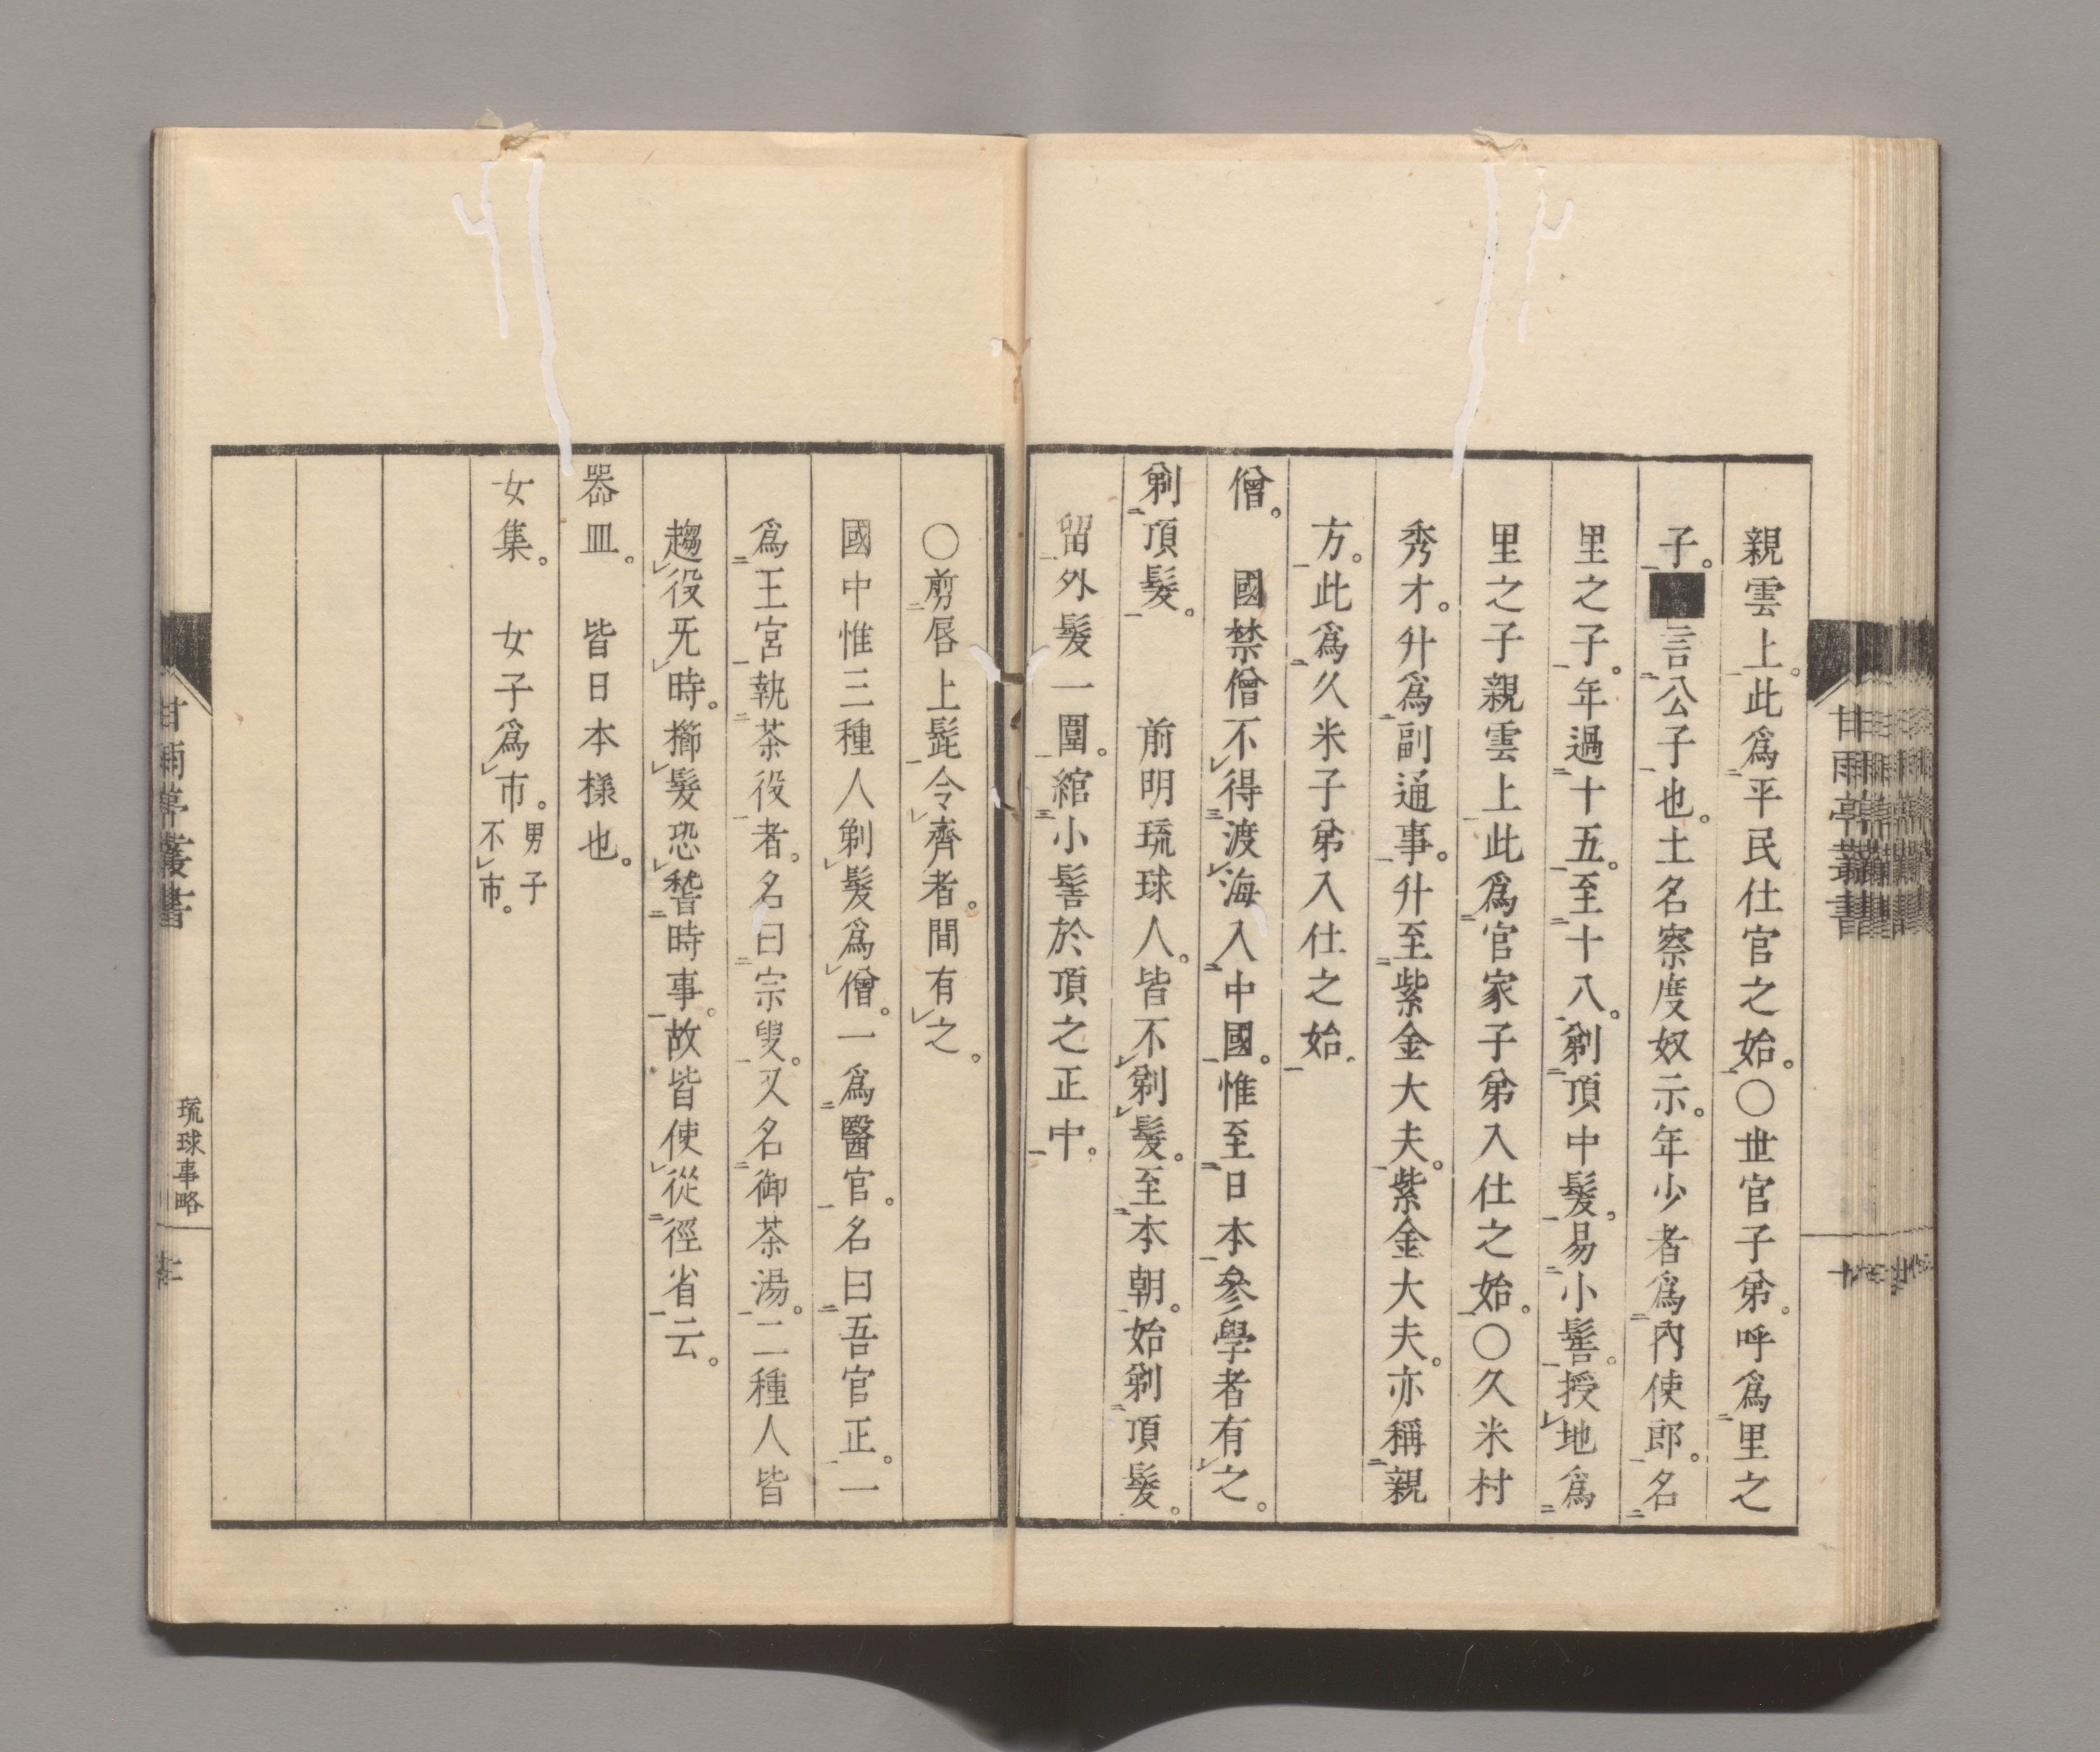 親雲上。此爲平民仕官之始。〇世官子弟。呼爲里之
子。■言公子也。土名察度奴示。年少者爲內使郎。名
里之子。年過十五。至十八。剃頂中髮。易小髻。授地爲
里之子親雲上此爲官家子弟入仕之始。〇久米村
秀才。升爲副通事。升至紫金大夫。紫金大夫。亦稱親
方。此爲久米子弟入仕之始。
僧。 國禁僧不得渡海入中國。惟至日本參學者有之。
剃頂髮。 前明琉球人。皆不剃髮。至本朝。始剃頂髮。
留外髮一圍。綰小髻於頂之正中。
〇剪唇上髭令齊者。間有之。
國中惟三種人剃髮爲僧。一爲醫官。名曰吾官正。一
爲王宮執茶役者。名曰宗叟。又名御茶湯。二種人皆
趨役旡時。櫛髮恐稽時事。故皆使從徑省云。
器皿。 皆日本樣也。
女集。 女子爲市。男子不市。
甘雨亭叢書
甘雨亭叢書
琉球事略